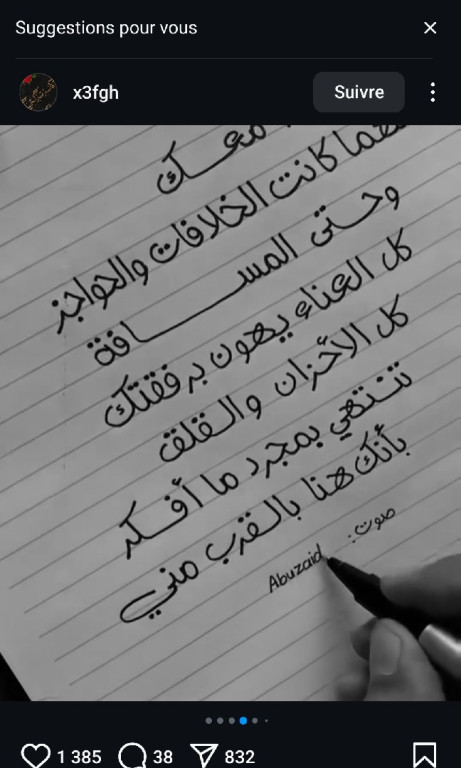 Suggestions pour vous
x3fgh
Suivre
معك
مهما كانت الخلافات والحواجز
وحتى المسافة
كل العناء يهون برفقتك
كل الأحزان والقلق
تنتهي بمجرد ما أفكر
بأنك هنا بالقرب مني
صوت:
Abuzaid
1 385
38
832